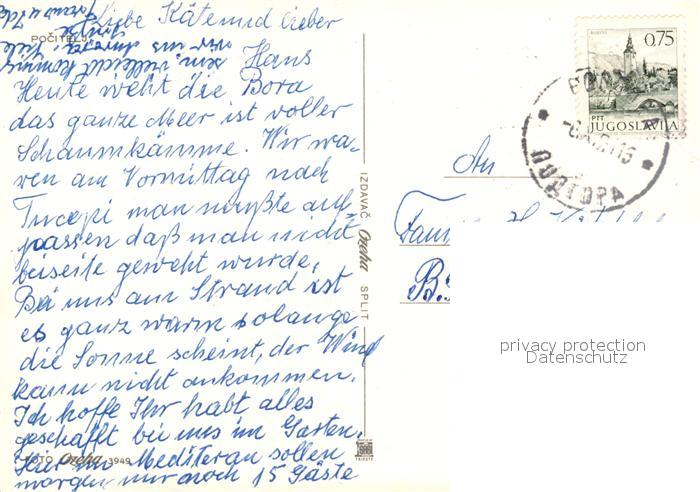 Liebe Käte und lieber
Hans
POČITELJ
Heute weht die Bora
das ganze Meer ist voller
Schaumkämme. Wir wa-
ren am Vormittag nach
Tucepi man mußte auf-
passen daß man nicht
beiseite geweht wurde,
Bei uns am Strand ist
es ganz warm solange
die Sonne scheint, der Wind
kann nicht ankommen.
Ich hoffe Ihr habt alles
geschafft bei uns im Garten.
Hier im Mediteran sollen
morgen nur noch 15 Gäste
FOTO Oreha 3949
IZDAVAČ Oreha SPLIT
An
Fam
B.
0,75
PTT
JUGOSLAVIJA
ПОДГОРА
privacy protection
Datenschutz